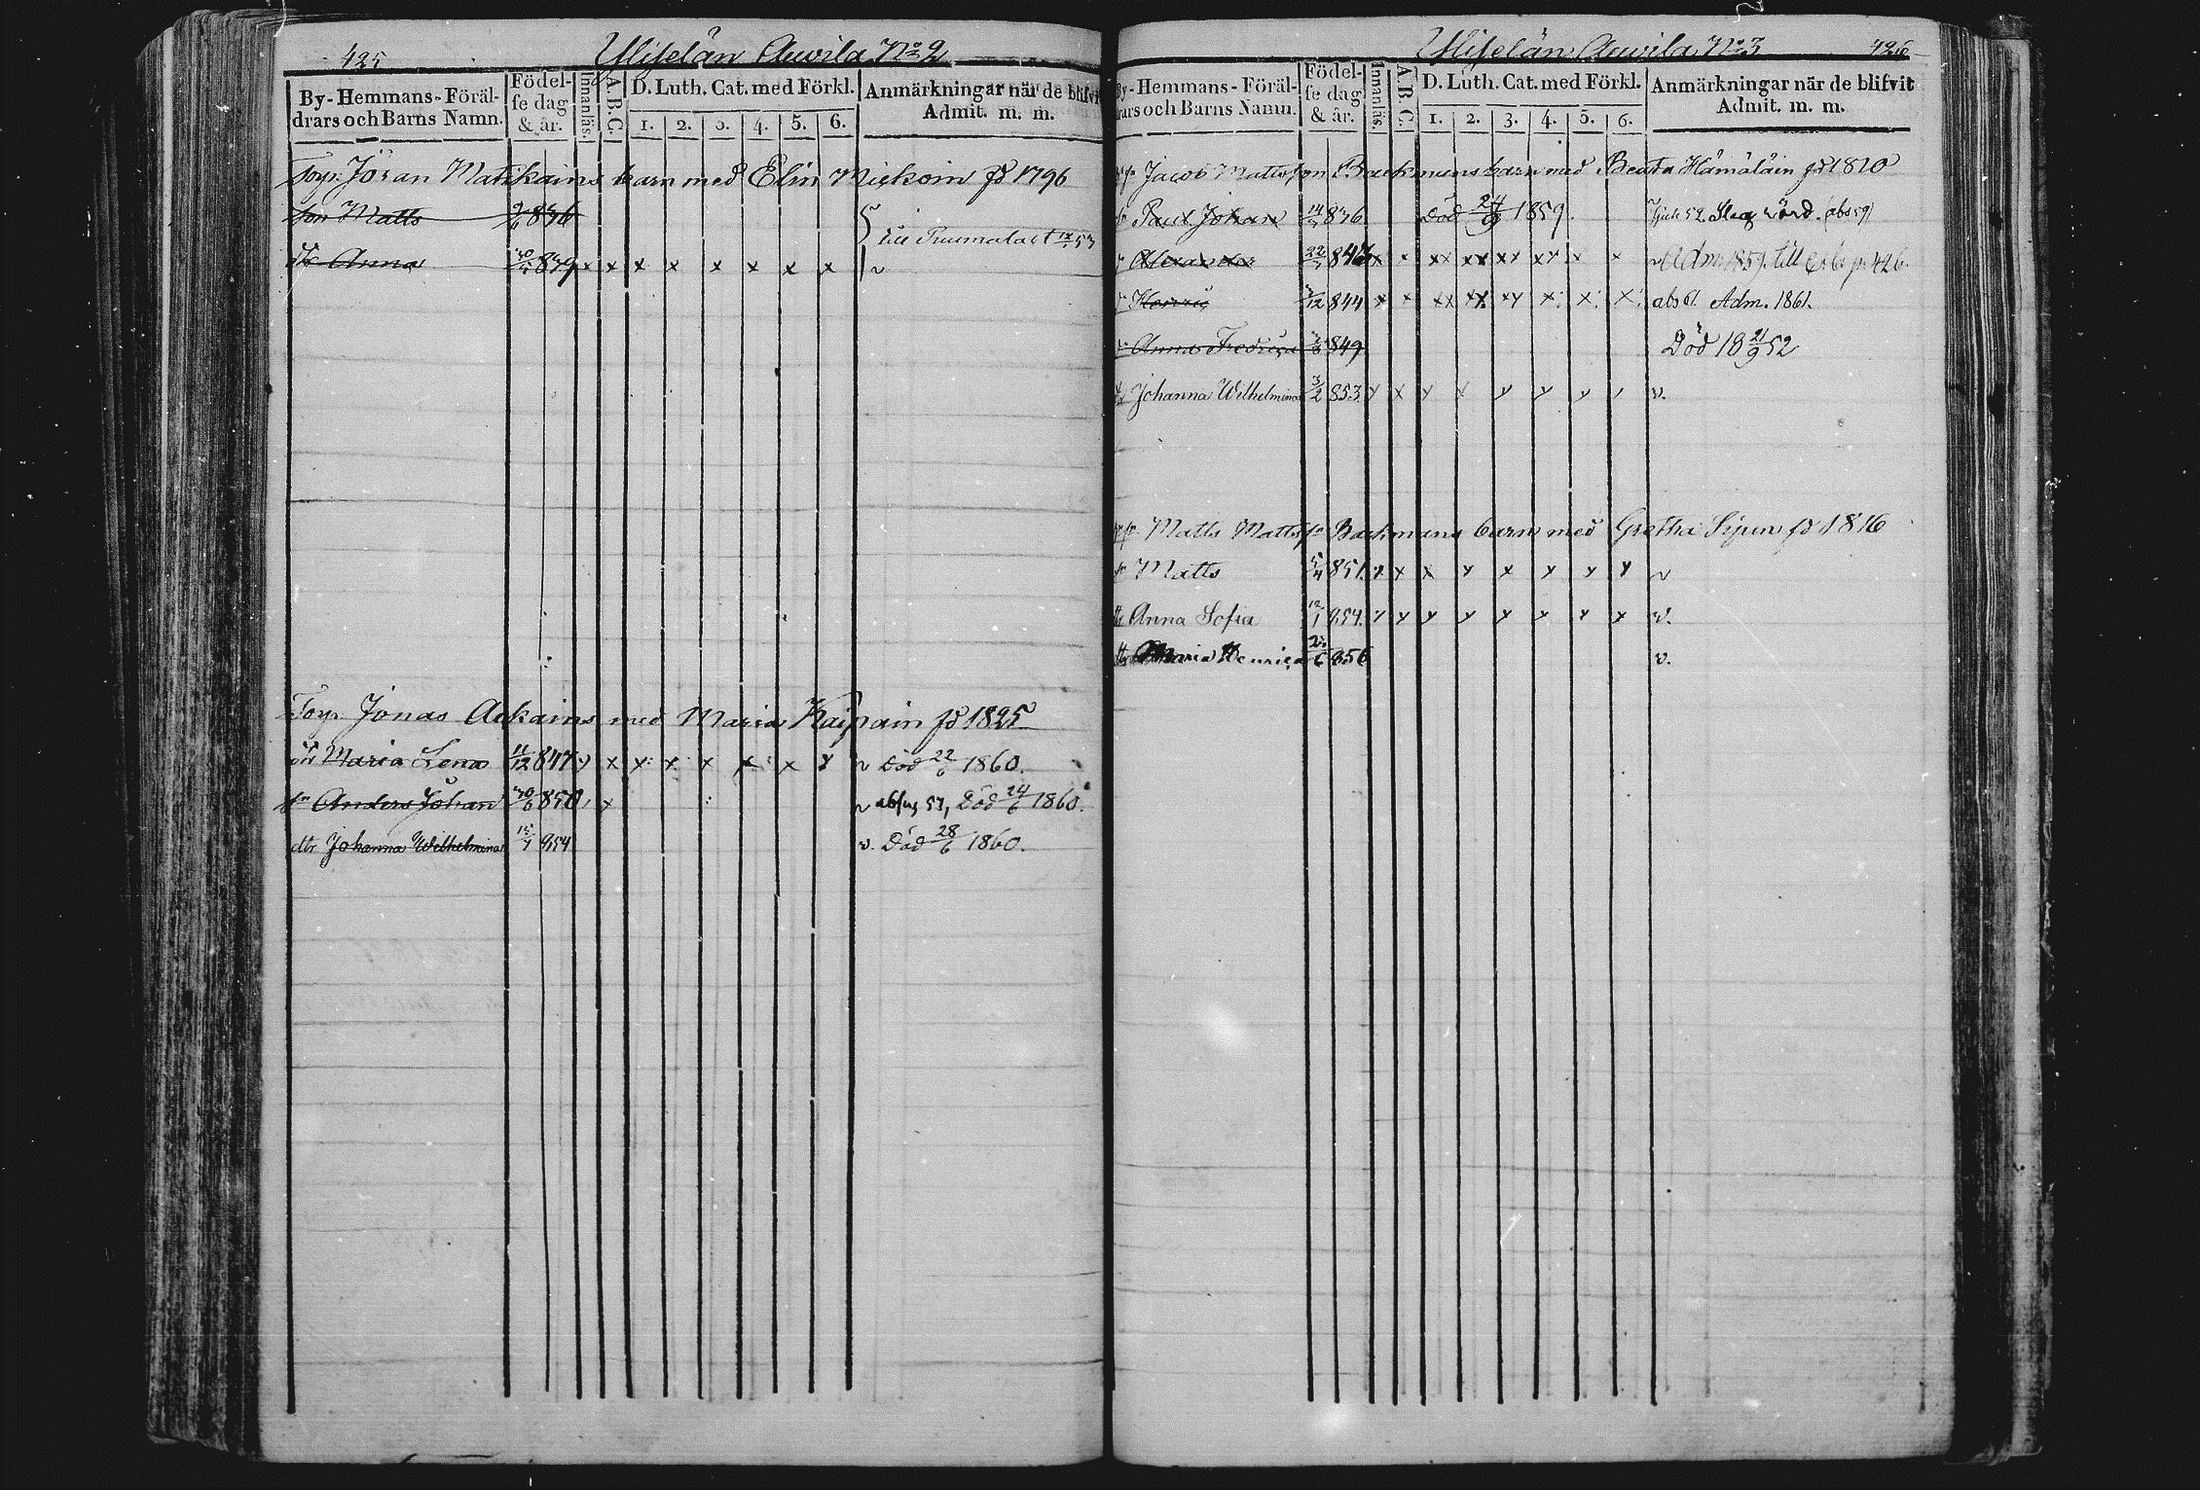 425
Ulifelän Auvila No 2
By-Hemmans-Föräl-
drars och Barns Namn.
Födel-
se dag
& år.
Innanläs.
A.B.C.
D. Luth. Cat. med Förkl.
1. 2. 3. 4. 5. 6.
Anmärkningar när de blifvit
Admit. m. m.
Torp. Jöran Matikains barn med Elin Mickoin fd 1796
son Matts 836
dr Anna 30 839 x x x x x x x x v
till Pumala at 53
Torp. Jonas Ackains med Maria Kaipain fd 1825
dr Maria Lena 11/12 847 x x x x x x x v Död 22/6 1860.
sn Anders Johan 30/6 850 x v abs 57, Död 24/6 1860.
dtr Johanna Wilhelmina 15/1 854 v. Död 28/6 1860.
Ulifelän Auvila No 3
426
By-Hemmans-Föräl-
drars och Barns Namn.
Födel-
se dag
& år.
Innanläs.
A.B.C.
D. Luth. Cat. med Förkl.
1. 2. 3. 4. 5. 6.
Anmärkningar när de blifvit
Admit. m. m.
Jacob Mattsson Backmans barn med Beata Hämäläin fd 1810
sn Paul Johan 14 836 Död 24/9 1859. Sjuk 52. (abs 59)
Alexander 22 842 x x xx xx xx xx x x v Adm. 1859. till p. 426.
3/12 844 x x xx xx xx x x x abs 61. Adm. 1861.
Anna Fredrica 849 Död 18 21/9 52
dr Johanna Wilhelmina 3/2 853 x x x x x x x v.
Matts Mattss: Backmans barn med Gretha Sijun fd 1816
sn Matts 5/4 851. x x x x x x x x v
dtr Anna Sofia 12/1 854. x x x x x x x x v.
dtr Maria Henrica 6 856 v.